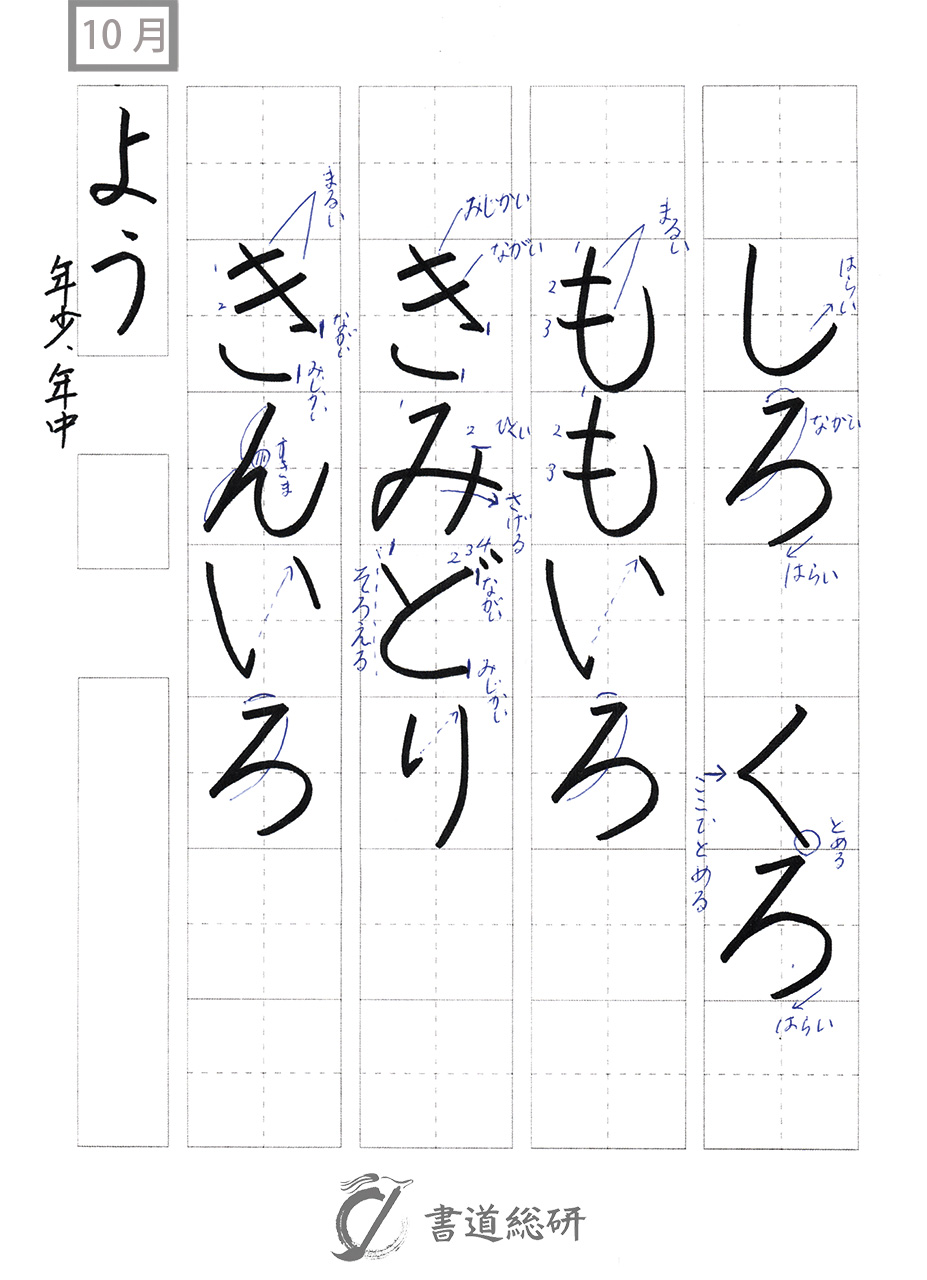 10月
しろ くろ
はらい
ながい
はらい
とめる
ここでとめる
はらい
ももいろ
まるい
1
2
3
1
2
3
きみどり
みじかい
ながい
1
2 ひくい
さげる
1
2 3 4
ながい
そろえる
みじかい
きんいろ
まるい
1
2
ながい
みじかい
すきま
よう
年少、年中
書道総研